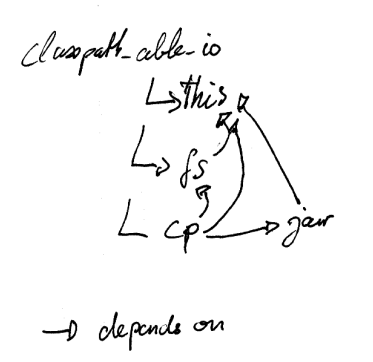 classpath_able_io
this
fs
cp jar
depends on